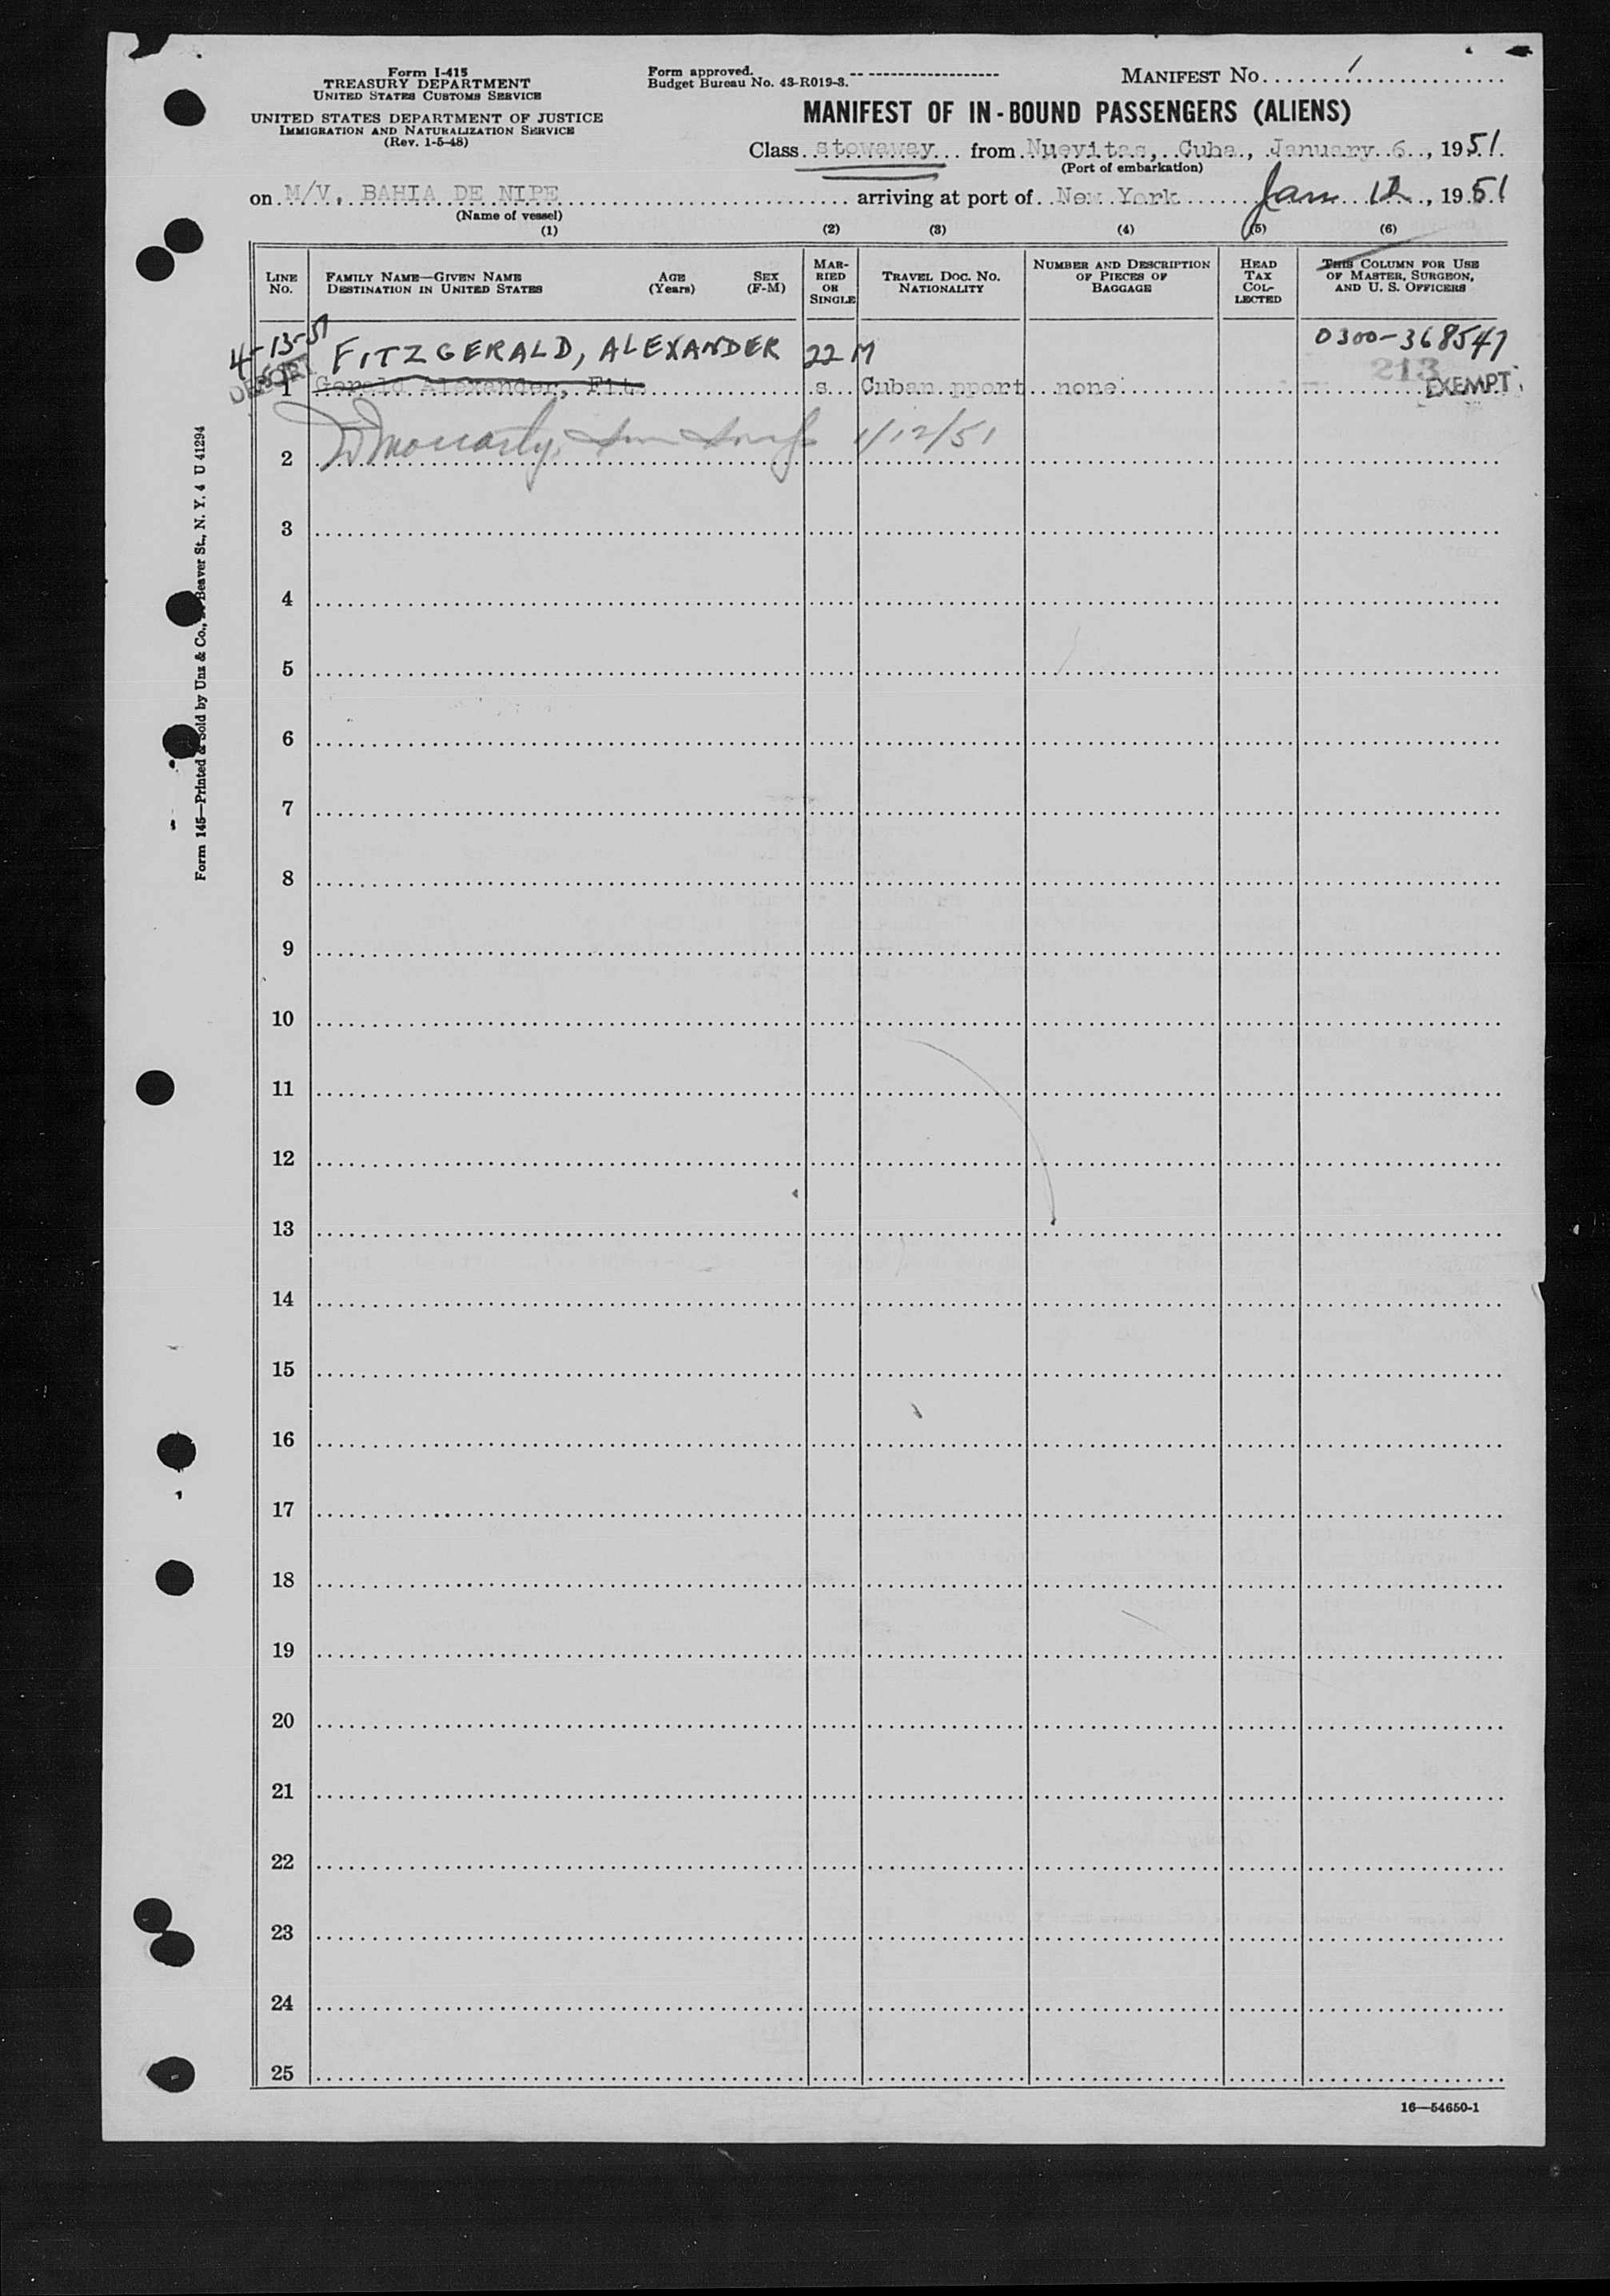 Form I-415
TREASURY DEPARTMENT
UNITED STATES CUSTOMS SERVICE
UNITED STATES DEPARTMENT OF JUSTICE
IMMIGRATION AND NATURALIZATION SERVICE
(Rev. 1-5-48)
Form approved.
Budget Bureau No. 43-R019-3.
MANIFEST No. 1
MANIFEST OF IN-BOUND PASSENGERS (ALIENS)
Class stowaway from Nuevitas, Cuba, January 6, 1951
(Port of embarkation)
on M/V. BAHIA DE NIPE arriving at port of New York Jan 12, 1951
(Name of vessel)
(1) (2) (3) (4) (5) (6)
LINE No.
FAMILY NAME—GIVEN NAME
DESTINATION IN UNITED STATES
AGE (Years)
SEX (F-M)
MARRIED OR SINGLE
TRAVEL DOC. No. NATIONALITY
NUMBER AND DESCRIPTION OF PIECES OF BAGGAGE
HEAD TAX COLLECTED
THIS COLUMN FOR USE OF MASTER, SURGEON, AND U. S. OFFICERS
4-13-51 FITZGERALD, ALEXANDER 22 M 0300-368547
DEPORT 213
1 Gerald Alexander, Fitz s Cuban pport none EXEMPT
2 1/12/51
3
4
5
6
7
8
9
10
11
12
13
14
15
16
17
18
19
20
21
22
23
24
25
16—54650-1
Form 145—Printed & Sold by Unz & Co., Beaver St., N. Y. 4 U 41294